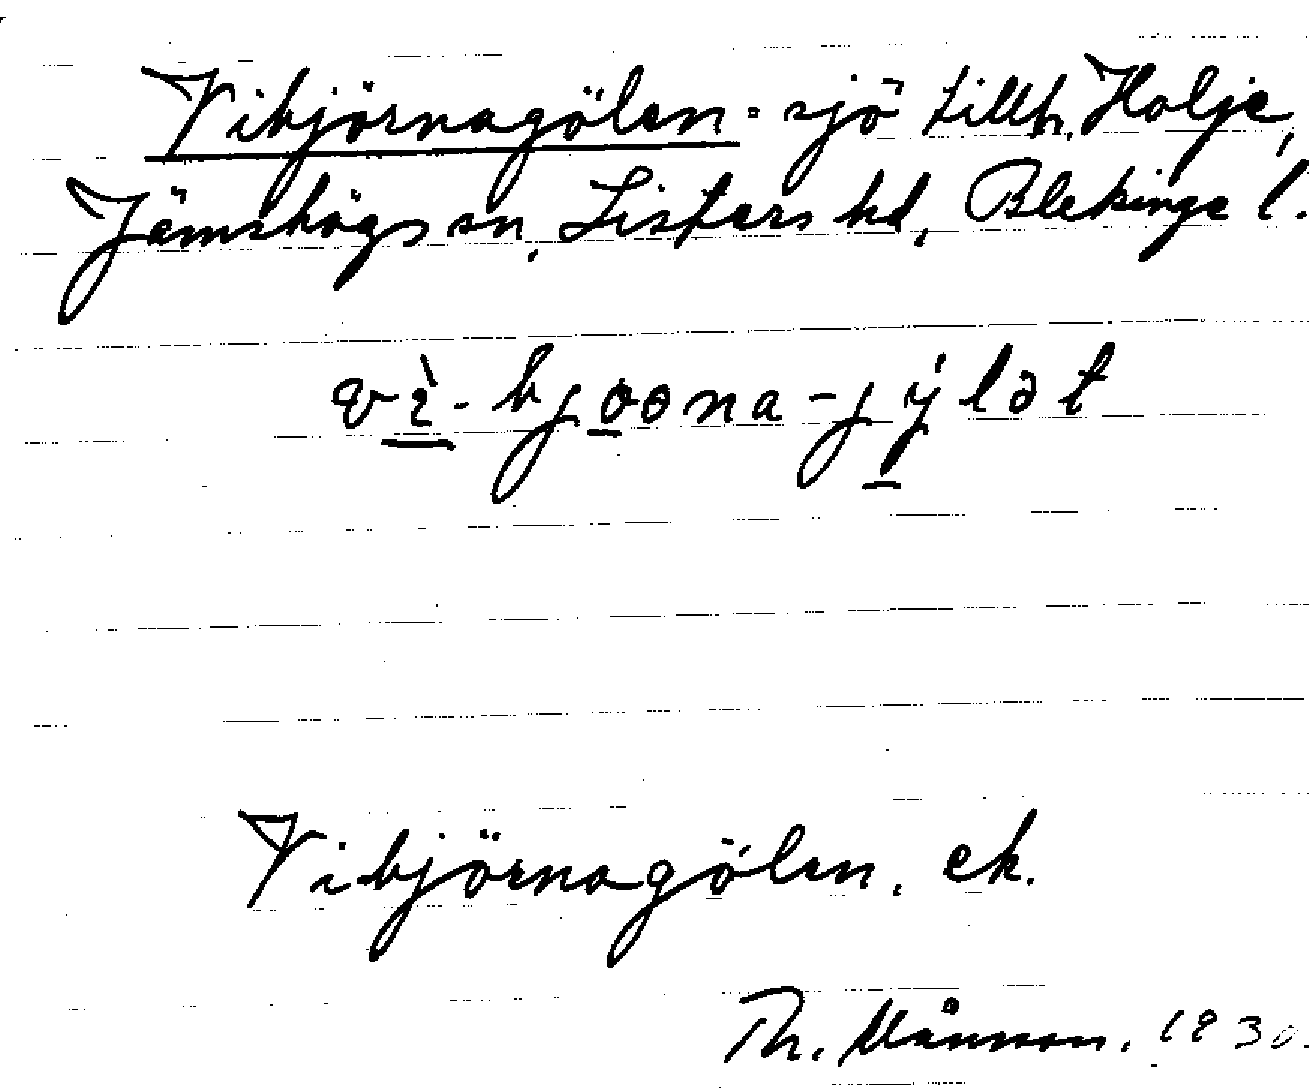 Vibjörnagölen = sjö tillh. Holje,
Jämshögs sn, Listers hd, Blekinge l.
vì-bjoona-jýlət
Vibjörnagölen. ek.
Th. Månsson. 1930.